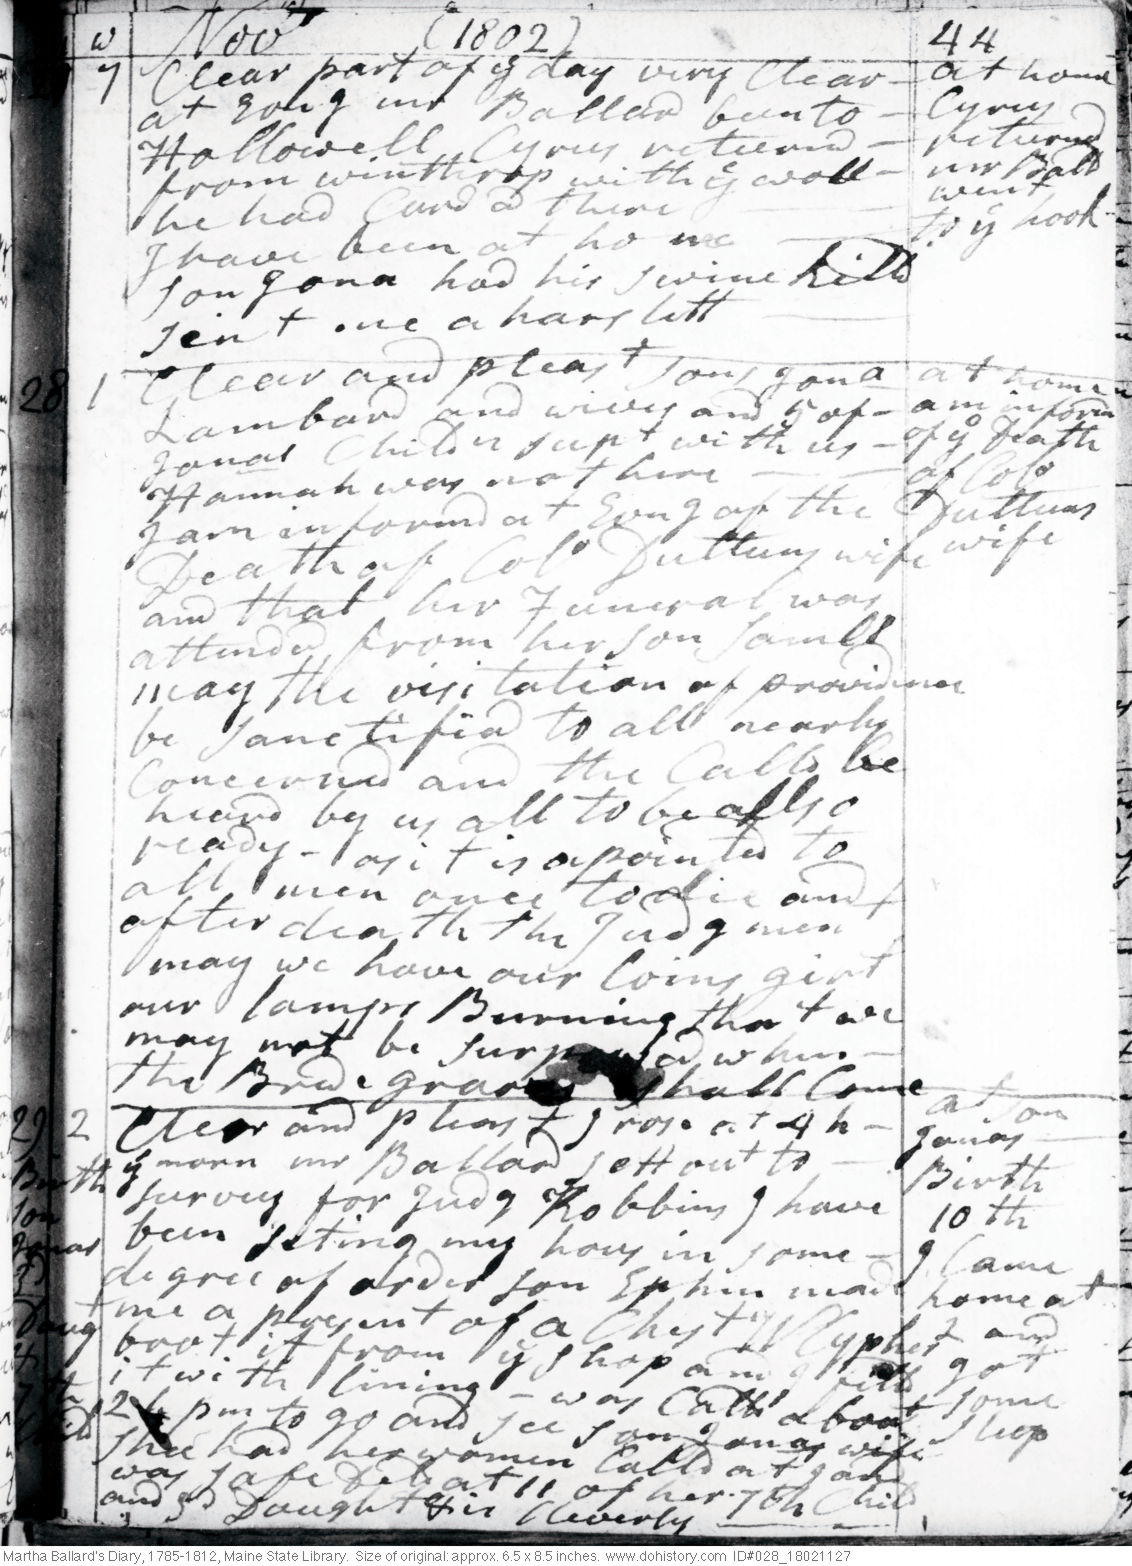 w Novr (1802) 44
7 Clear part of ye day very Clear
at Eving mr Ballard been to
Hallowell Cyrus returnd
from winthrop with ye wool
he had Cardd there
I have been at home
son Jona had his swine killd
sent me a hars lett
at home
Cyrus
returnd
mr Balld
went
to ye hook
28 1 Clear and pleast sons Jona
Lambard and wives and 5 of
Jonas Childn supt with us
Hannah was not here
I am informd at Evng of the
Death of Colo Duttuns wife
and that her Funeral was
attended from her son Samlls
may the visitation of providence
be sanctified to all nearly
Concernd and the Calls be
heard by us all to be allso
ready - as it is apointed to
all men once to die and
after death the Judgmen
may we have our loins girt
our lamps Burning that we
may not be surprised when
the Bride groom shall Come
at home
am informd
of ye Death
of Colo
Duttuns
wife
29 2 Clear and pleast I rose at 4 h
ye morn mr Ballard sett out to
survey for Judg Robbins I have
been seting my hous in some
degree of order son Ephm made
me a present of a Chest Wm Clypher
brot it from ye shop and I
it with lining - was Calld about
2 h pm to go and see son Jonas wife
shee had her women Calld at 7 and
was safe Deld at 11 of her 7th Child
and 3d Daught 4 is Cleverly
Birth
son
Jonas
3d
Daugt
4
7th
Child
at son
Jonas
Birth
10th
I Came
home at
2 and
got
some
sleep
Martha Ballard's Diary, 1785-1812, Maine State Library. Size of original: approx. 6.5 x 8.5 inches. www.dohistory.com ID#028_18021127